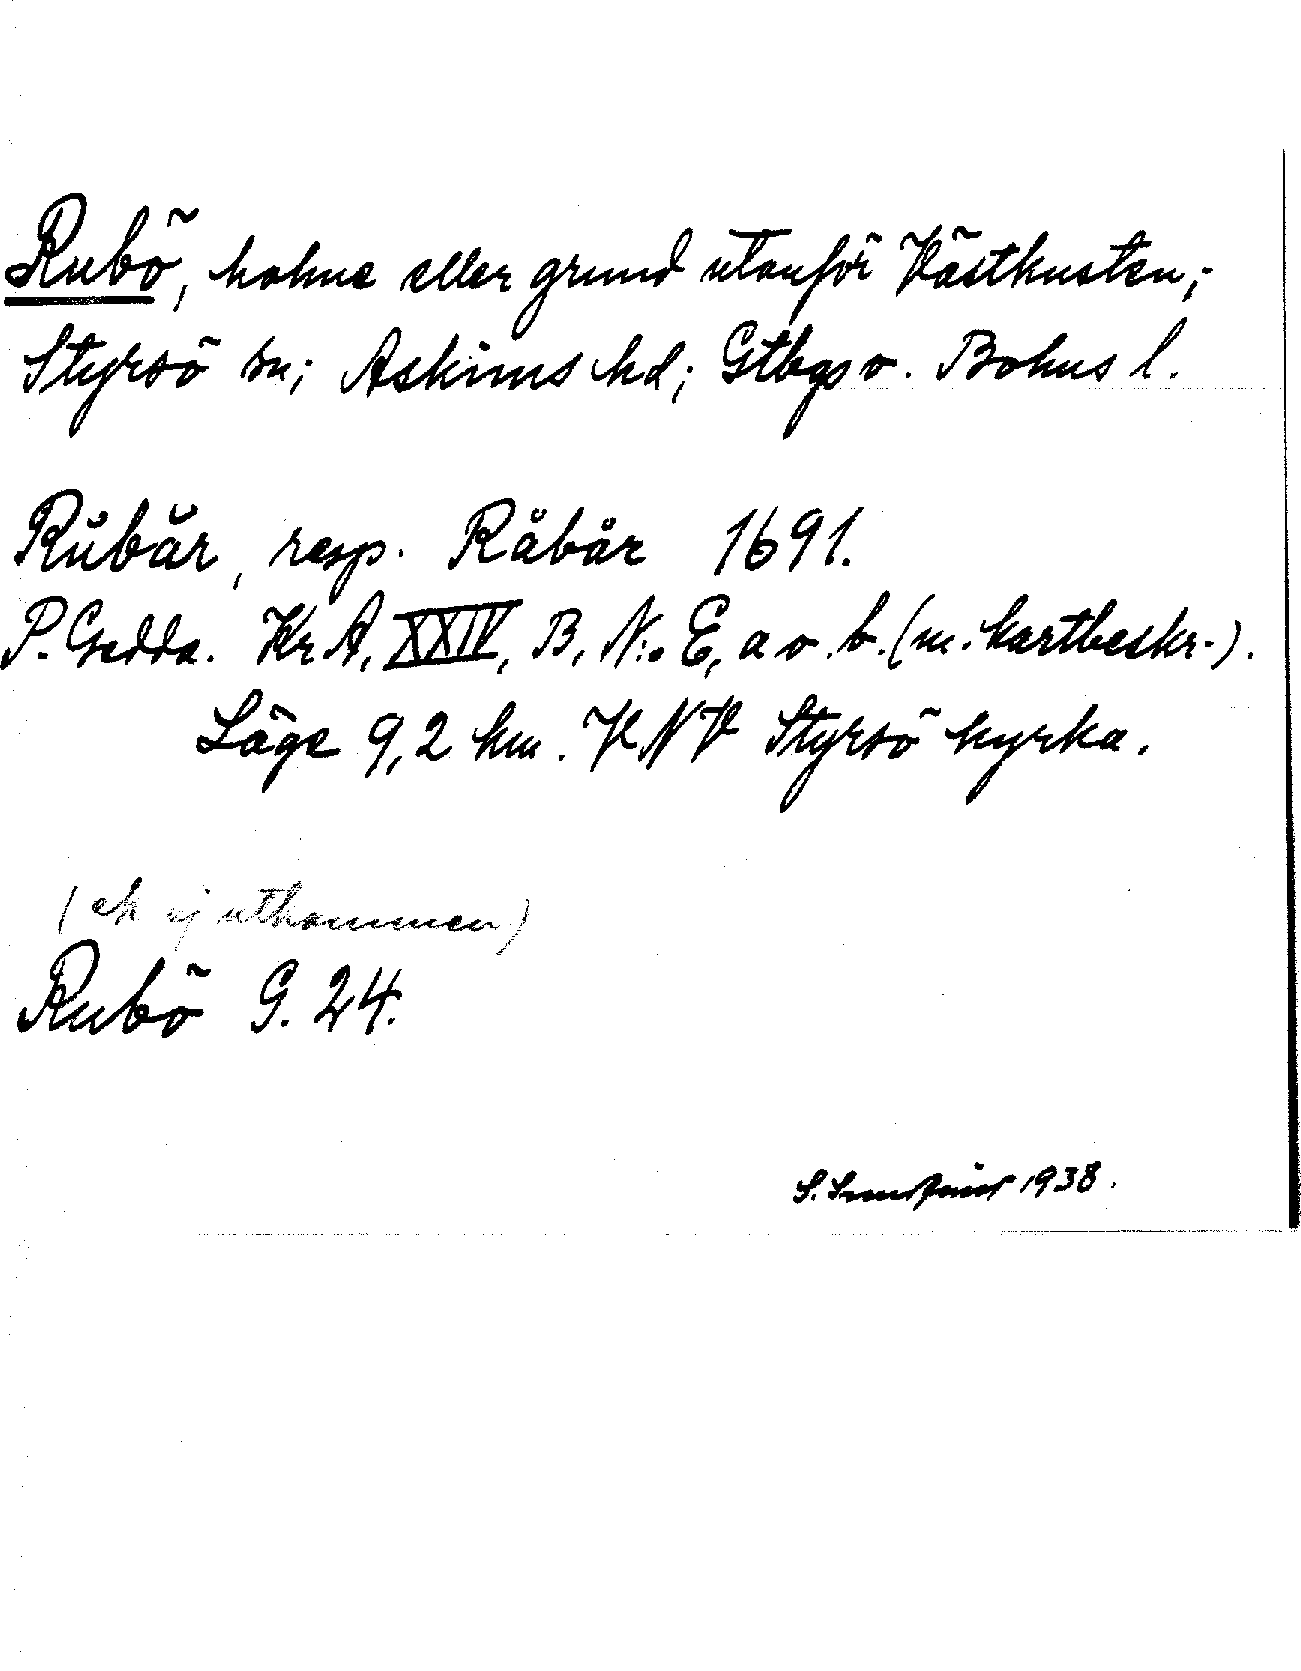 Rubö, holme eller grund utanför Västkusten;
Styrsö sn; Askims hd; Gtbgs o. Bohus l.
Rŭbår, resp. Råbår 1691.
P. Gedda. Kr A, XXIV, B, N:o E, a o. b. (m. kartbeskr.).
Läge 9,2 km. VNV Styrsö kyrka.
(ek ej utkommen)
Rubö G. 24.
S. 1938.